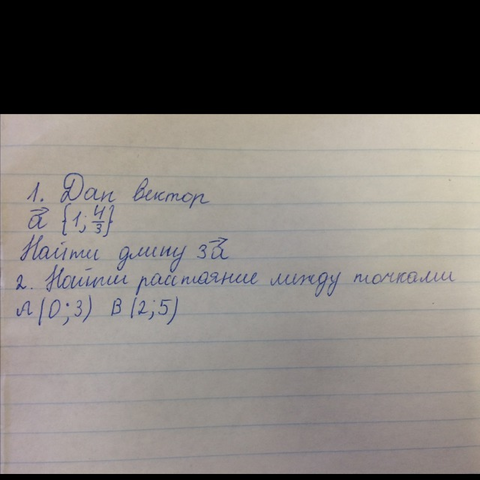 1. Дан вектор
a⃗ {1; 4/3}
Найти длину 3a⃗
2. Найти растояние между точками
A (0; 3) B (2; 5)